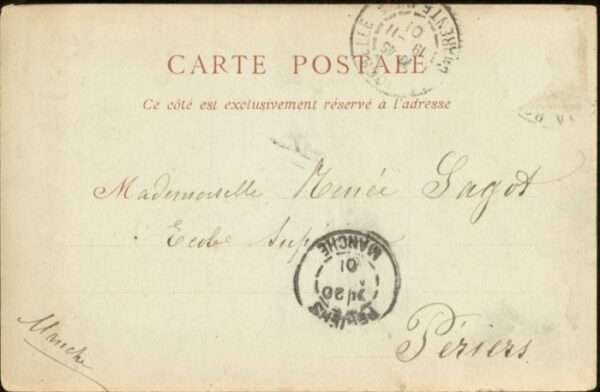 CARTE POSTALE
Ce côté est exclusivement réservé à l'adresse
Mademoiselle Renée Sagot
Ecole Supre
Périers
Manche
19
-11
01
PERIERS
MANCHE
20
01